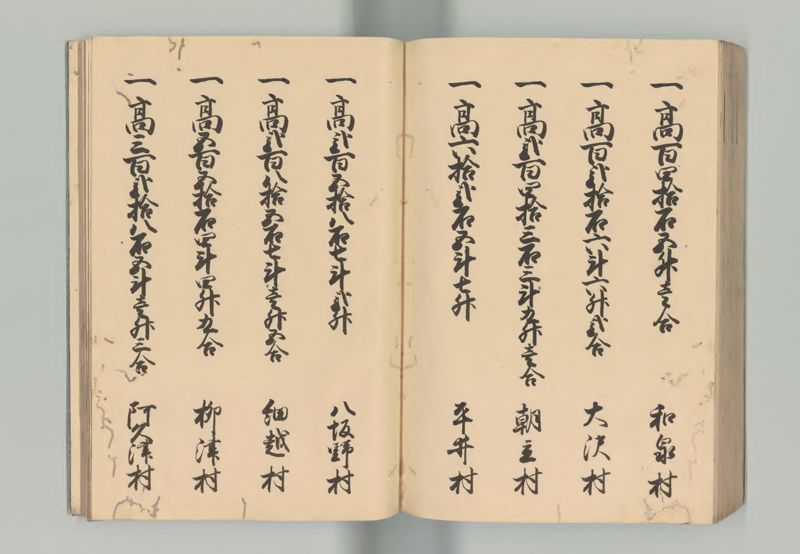 一高百四拾石五升壱合 和泉村
一高百弐拾石六斗六升弐合 大沢村
一高弐百四拾三石三斗九升壱合 朝立村
一高六拾弐石五斗七升 平井村
一高弐百五拾八石七斗弐升 八坂野村
一高弐百八拾五石七斗壱升五合 細越村
一高五百五拾石四斗四升九合 柳津村
一高三百弐拾八石五斗壱升三合 阿久津村